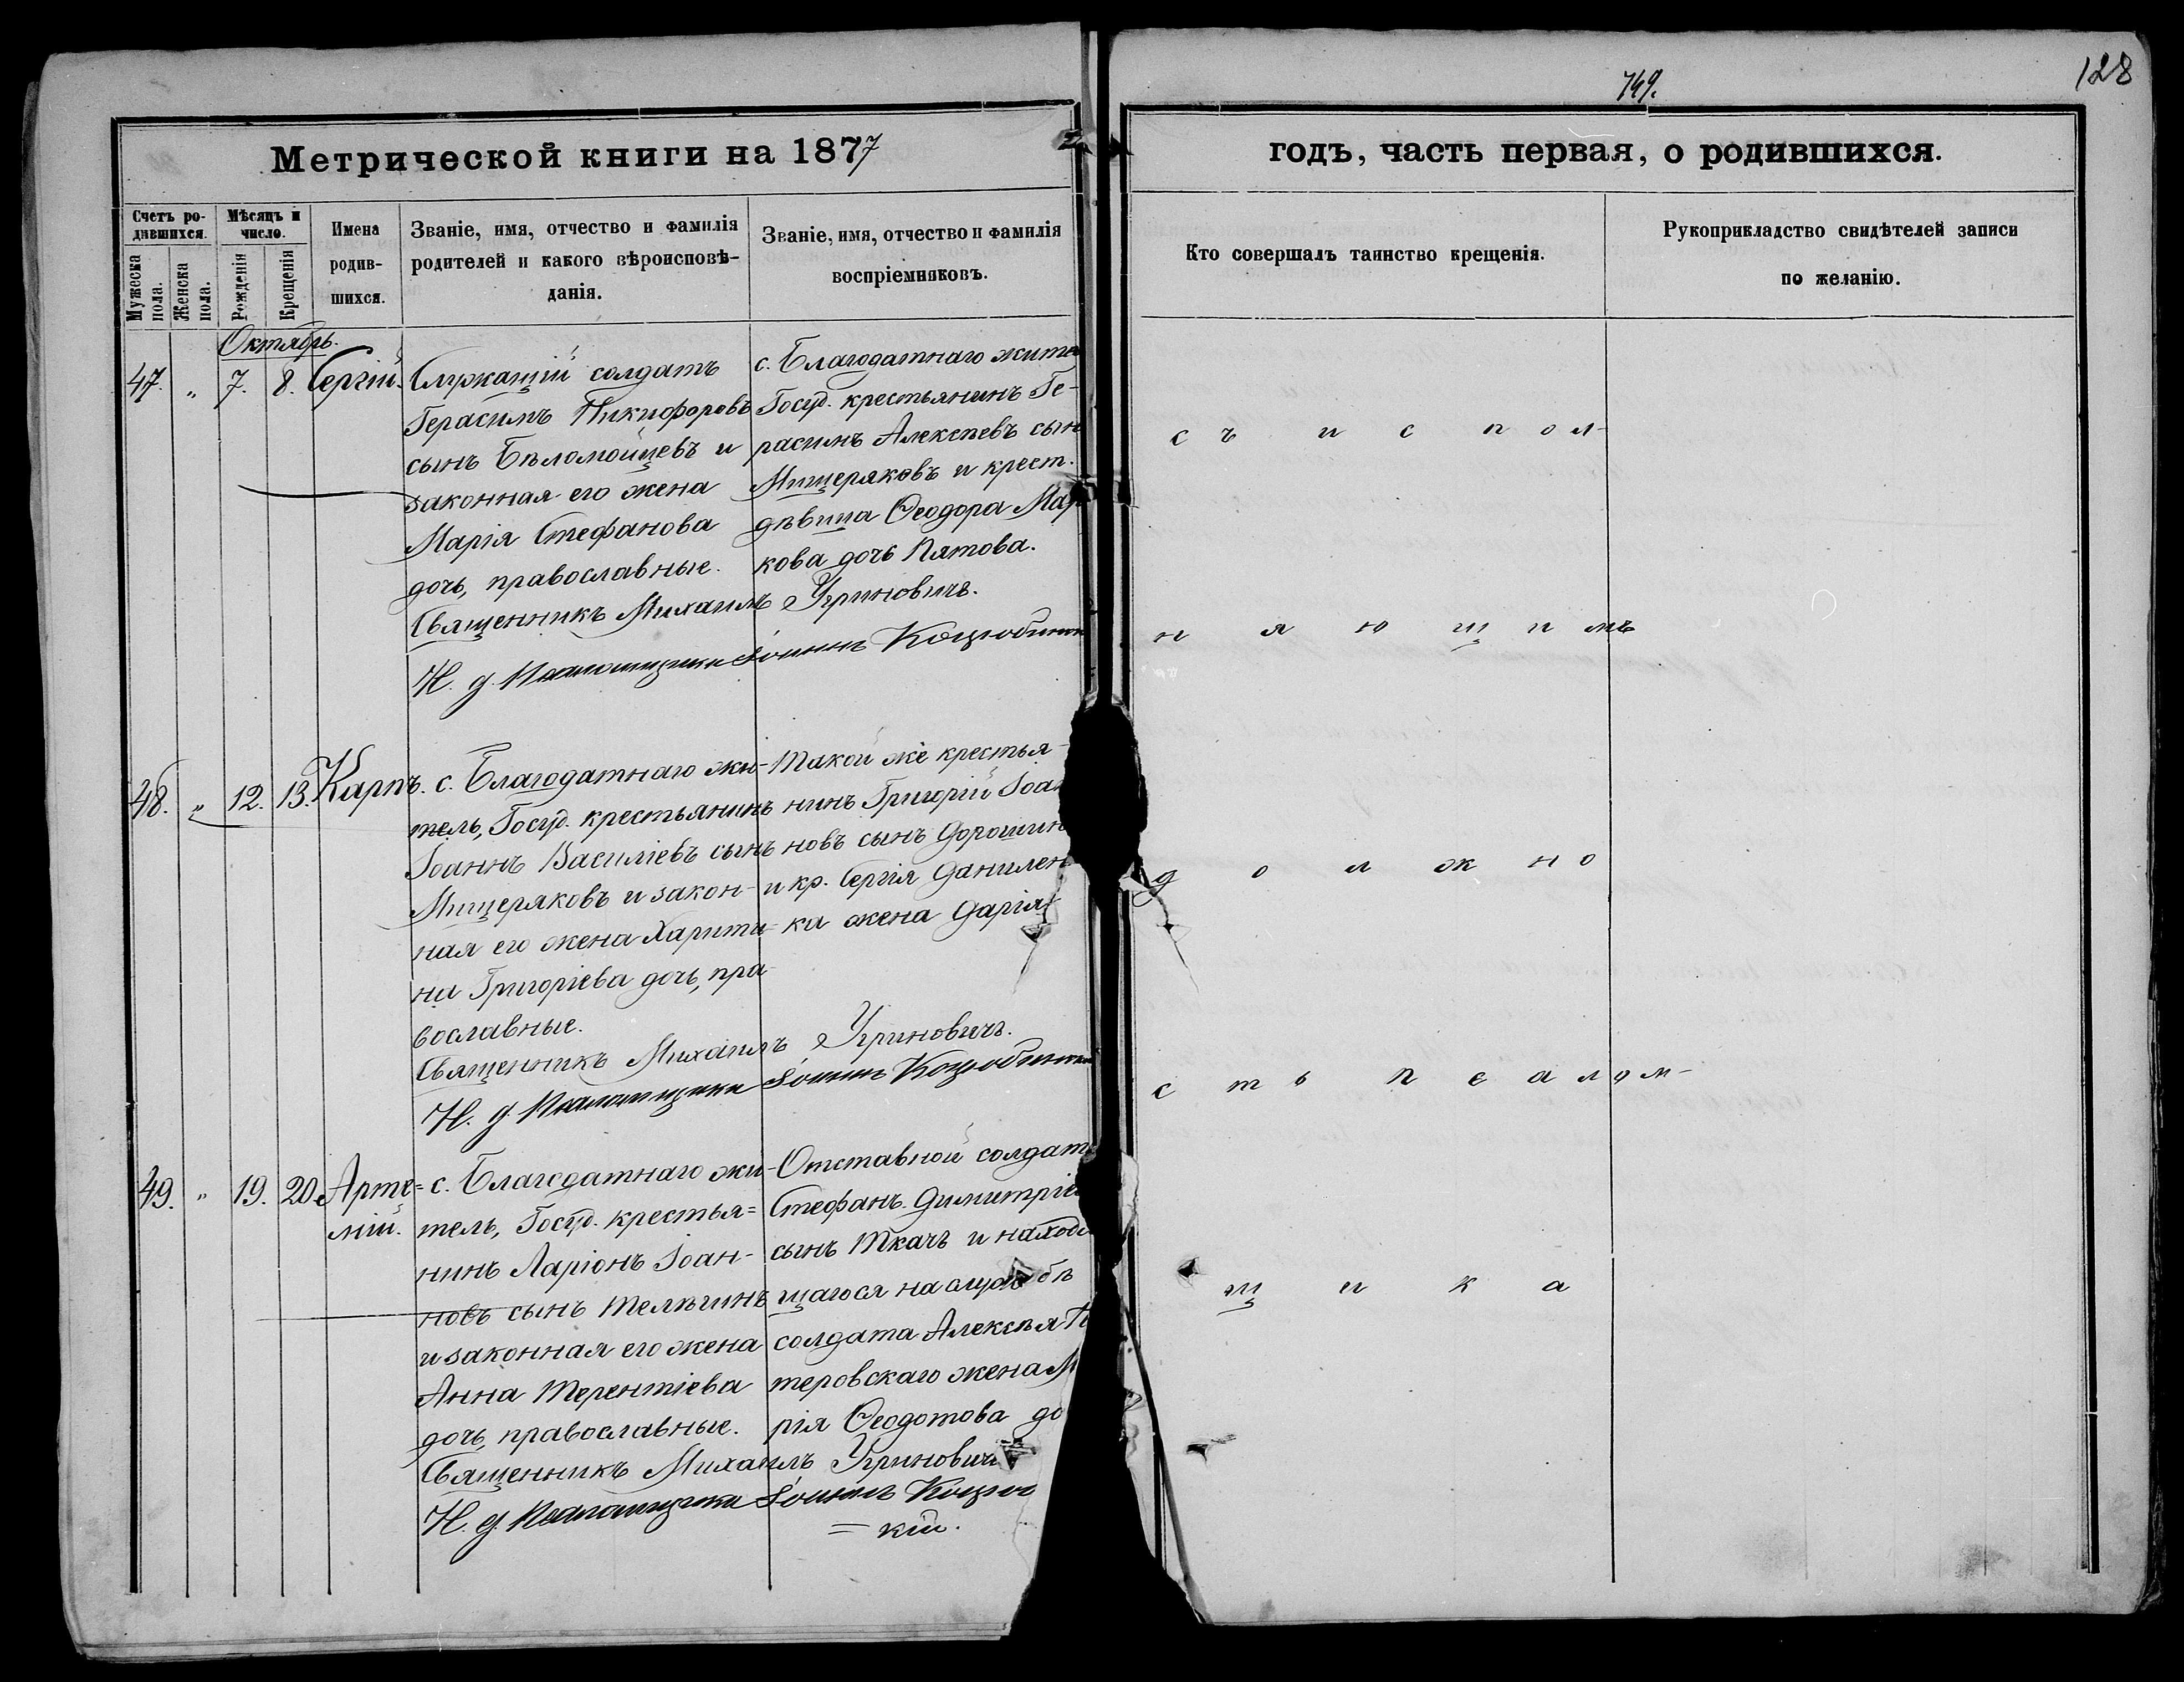 749.
128
Метрической книги на 1877
годъ, часть первая, о родившихся.
Счетъ ро-
дившихся.
Мужеска пола.
Женска пола.
Мѣсяцъ и
число.
Рожденія
Крещенія
Имена
родив-
шихся.
Званіе, имя, отчество и фамилія
родителей и какого вѣроисповѣ-
данія.
Званіе, имя, отчество и фамилія
воспріемниковъ.
Кто совершалъ таинство крещенія.
Рукоприкладство свидѣтелей записи
по желанію.
Октябрь.
47. „ 7. 8. Сергій.
Служащій солдатъ
Герасимъ Никифоровъ
сынъ Бѣломойцевъ и
законная его жена
Марія Стефанова
дочь, православные.
с. Благодатнаго жите
Госуд. крестьянинъ Ге-
расимъ Алексѣевъ сын
Мищеряковъ и крест.
дѣвица Ѳеодора Мар
кова дочь Пятова.
Священникъ Михаилъ Угриновичъ.
И. д. Псаломщика Іоаннъ Коцюбинск
48. „ 12. 13. Карпъ.
с. Благодатнаго жи-
тель, Госуд. крестьянинъ
Іоаннъ Василіевъ сынъ
Мищеряковъ и закон-
ная его жена Харити-
на Григоріева дочь, пра
вославные.
Такой же крестья-
нинъ Григорій Іоан
новъ сынъ Дорошин
и кр. Сергія Данилен
ка жена Дарія
Священникъ Михаилъ Угриновичъ.
И. д. Псаломщика Іоаннъ Коцюбинск
49. „ 19. 20. Арте=
мій.
с. Благодатнаго жи-
тель, Госуд. крестья=
нинъ Ларіонъ Іоан-
новъ сынъ Телѣгинъ
и законная его жена
Анна Терентіева
дочь, православные.
Отставной солдат
Стефанъ Димитріев
сынъ Ткачъ и находя
щагося на службѣ
солдата Алексѣя П
теровскаго жена М
рія Ѳеодотова до
Священникъ Михаилъ Угриновичъ
И. д. Псаломщика Іоаннъ Коцюб
= кій.
с ъ и с п о л-
н я ю щ и мъ
д о л ж н о
с т ь п с а л о м-
щ и к а